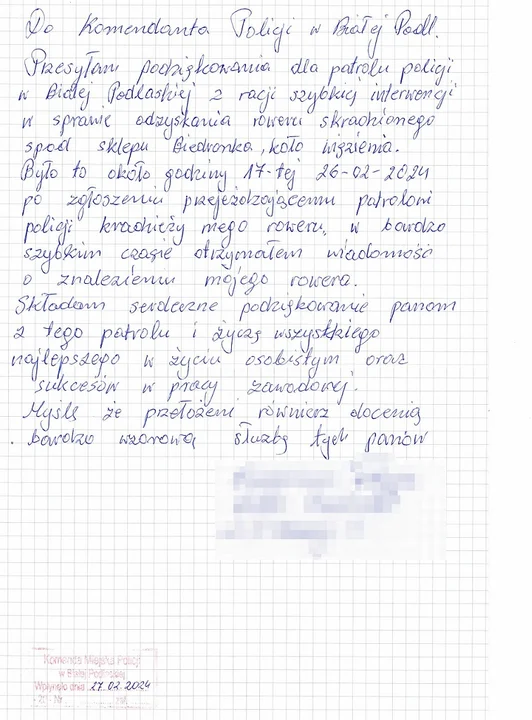 Do Komendanta Policji w Białej Podl.
Przesyłam podziękowania dla patrolu policji
w Białej Podlaskiej z racji szybkiej interwencji
w sprawie odzyskania roweru skradzionego
spod sklepu Biedronka, koło więzienia.
Było to około godziny 17-tej 26-02-2024
po zgłoszeniu przejeżdzającemu patrolowi
policji kradzieży mego roweru, w bardzo
szybkim czasie otrzymałem wiadomość
o znalezieniu mojego rowera.
Składam serdeczne podziękowanie panom
z tego patrolu i życzę wszystkiego
najlepszego w życiu osobistym oraz
sukcesów w pracy zawodowej.
Myślę że przełożeni również docenią
bardzo wzorową służbę tych panów
Komenda Miejska Policji
w Białej Podlaskiej
Wpłynęło dnia 27.02.2024